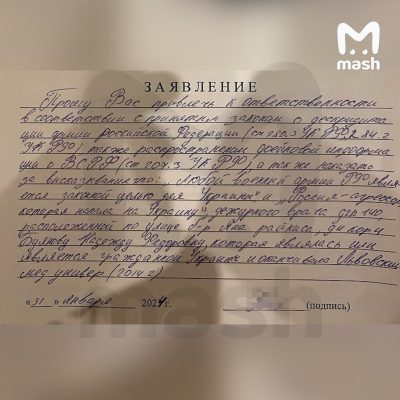 mash
ЗАЯВЛЕНИЕ
Прошу Вас привлечь к ответственности
в соответствии с принятым законом о дескредита
ции армии Российской Федерации (ст 280.3 УК РФ
УК РФ) также распространении фейковой информа
ции о ВС РФ (ст 207.3 УК РФ) а так же наказать
за высказывание что: Любой военный армии РФ явля
ется законой целью для "Украины" и "Россия-агрессор,
которая напала на Украину" дежурного врача
расположенной по улице б-р Яна райниса,
Буянову Надежду Федоровну, которая являлась или
является гражданкой Украины и оканчивала Львовский
мед универ (2014 г)
«31» января 2024г.
(подпись)
mash